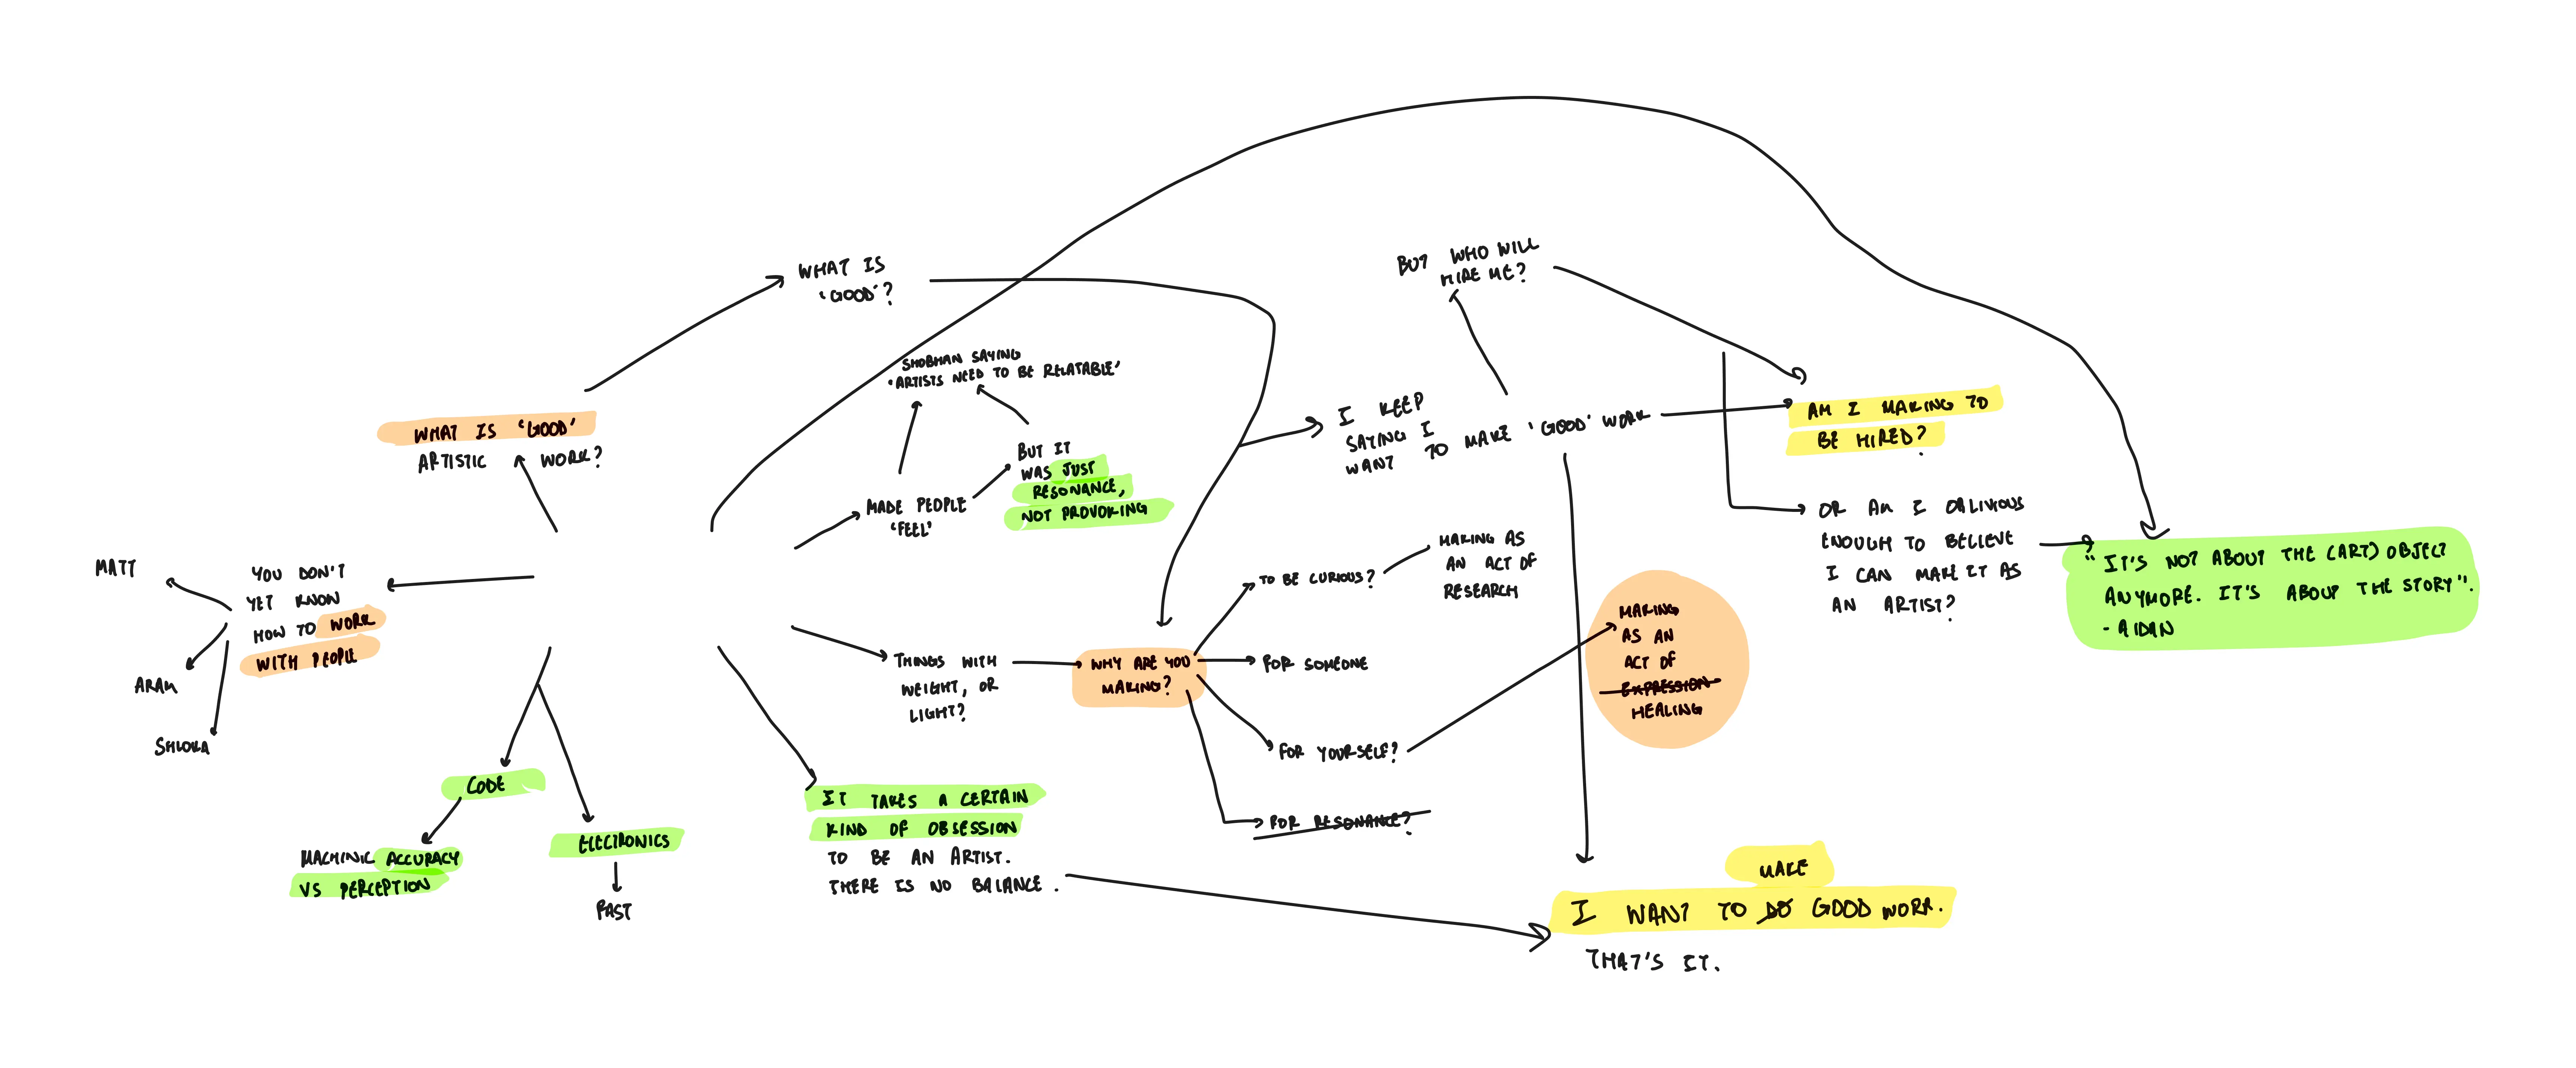 BUT WHO WILL
HIRE ME?
WHAT IS
'GOOD'?
SHOBHAN SAYING
'ARTISTS NEED TO BE RELATABLE'
I KEEP
SAYING I
WANT TO MAKE 'GOOD' WORK
AM I MAKING TO
BE HIRED?
WHAT IS 'GOOD'
ARTISTIC WORK?
BUT IT
WAS JUST
RESONANCE,
NOT PROVOKING
MADE PEOPLE
'FEEL'
OR AM I OBLIVIOUS
ENOUGH TO BELIEVE
I CAN MAKE IT AS
AN ARTIST?
"IT'S NOT ABOUT THE (ART) OBJECT
ANYMORE. IT'S ABOUT THE STORY".
- AIDAN
MATT
YOU DON'T
YET KNOW
HOW TO WORK
WITH PEOPLE
ARAM
SHLOKA
TO BE CURIOUS?
MAKING AS
AN ACT OF
RESEARCH
THINGS WITH
WEIGHT, OR
LIGHT?
WHY ARE YOU
MAKING?
FOR SOMEONE
FOR YOURSELF?
MAKING
AS AN
ACT OF
EXPRESSION
HEALING
FOR RESONANCE?
CODE
MACHINIC ACCURACY
VS PERCEPTION
ELECTRONICS
PAST
IT TAKES A CERTAIN
KIND OF OBSESSION
TO BE AN ARTIST.
THERE IS NO BALANCE.
MAKE
I WANT TO DO GOOD WORK.
THAT'S IT.